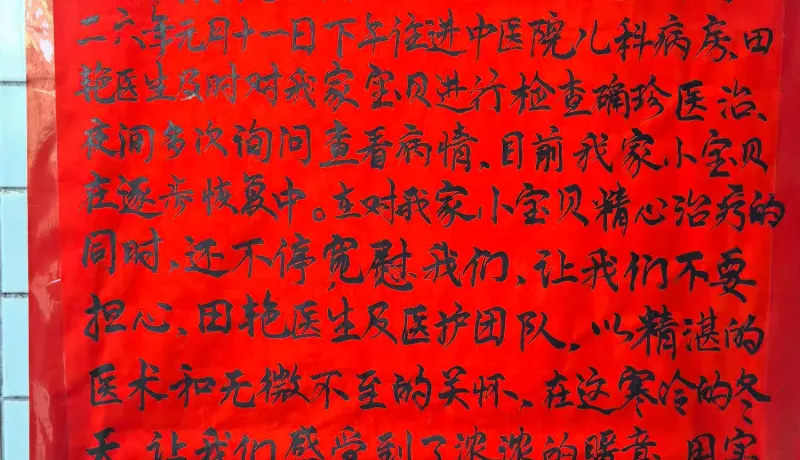 二六年元月十一日下午住进中医院儿科病房、田
艳医生及时对我家宝贝进行检查确珍医治、
夜间多次询问查看病情、目前我家小宝贝
在逐步恢复中。在对我家小宝贝精心治疗的
同时、还不停宽慰我们、让我们不要
担心、田艳医生及医护团队、以精湛的
医术和无微不至的关怀、在这寒冷的冬
天、让我们感受到了浓浓的暖意、用实